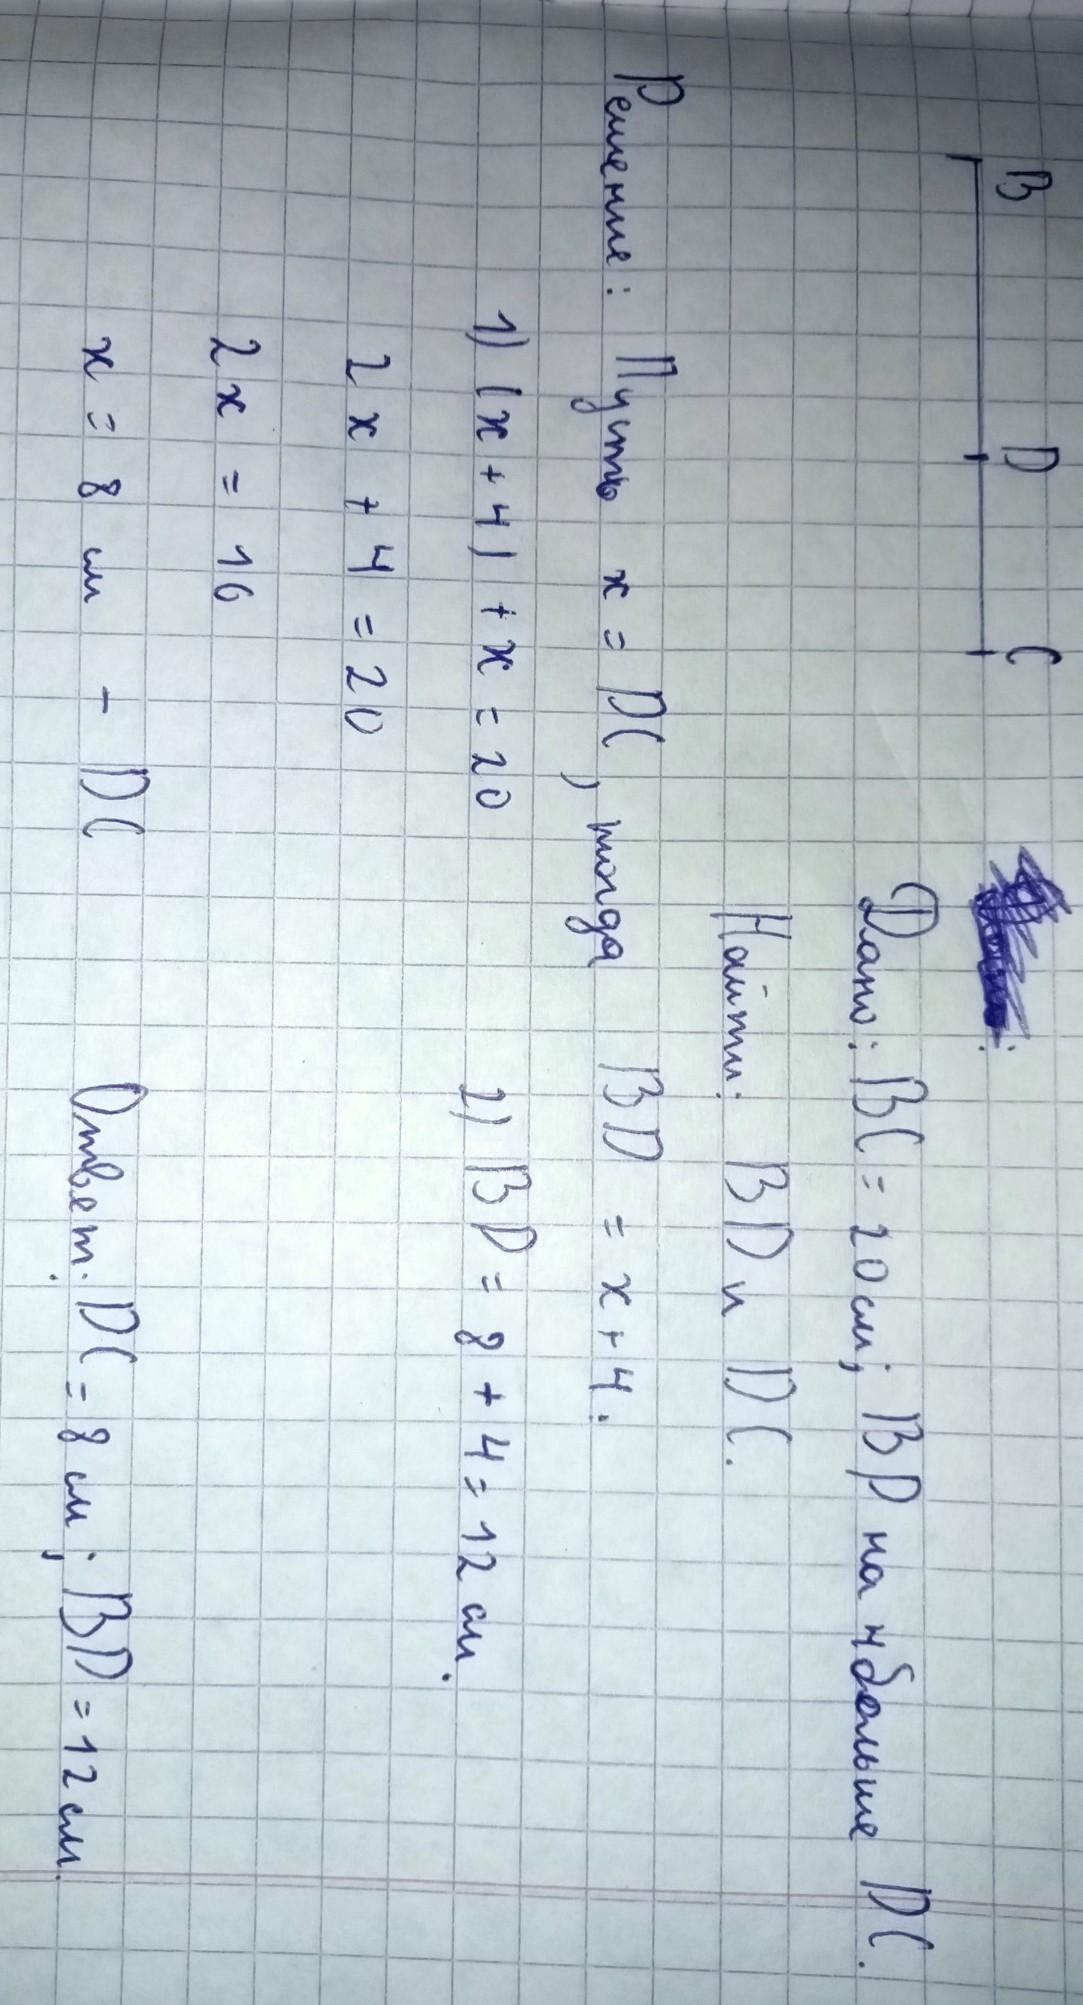 B D C
Дано: BC = 20 см; BD на 4 больше DC.
Найти: BD и DC.
Решение: Пусть x = DC, тогда BD = x + 4.
1) (x + 4) + x = 20
2x + 4 = 20
2x = 16
x = 8 см - DC
2) BD = 8 + 4 = 12 см.
Ответ: DC = 8 см; BD = 12 см.